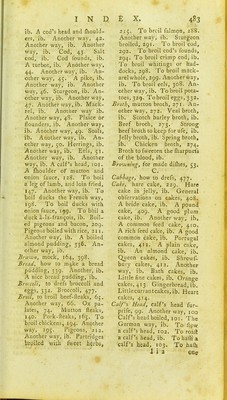 INDEX. 483
ib. A cod's head and should-
ers, ib. Another way, 42.
Another way, ib. Another
way, ib. Cod, 43. Salt
cod, ib. Cod sounds, ib.
A turbot, ib. Another way,
44. Another way, ib. An-
other way, 45. A pike, ib.
Another way, ib. Another
way, 46. Sturgeon, ib. An-
other way, ib. Another way,
47. Another way, ib. Mack-
rel, ib. Another way, ib.
Another way, 48. Plaice or
flounders, ib. Another way,
ib. Another way, 49. Soals,
ib. Another way, ib. An-
other way, 50. Herrings, ib.
Another way, ib. Eels, 51.
Another way, ib. Another
way, ib. A calf's head, 101.
A shoulder of mutton and
onion sauce, 128. To boil
a leg of lamb, and loin fried,
147. Another way, ib. To
boil ducks the French way,
198. To boil ducks with
onion sauce, 199. To boil a
duck à-la-françois, ib. Boil-
ed pigeons and bacon, 209.
Pigeons boiled with rice, 212.
Another way, ib. A boiled
almond pudding, 336. An-
other way, ib.
Brawn, mock, 184, 398.
Bread, how to make a bread
pudding, 339. Another, ib.
A nice bread pudding, ib.
Broccoli, to dress broccoli and
eggs, 332. Broccoli, 477.
Broil, to broil beef-steaks, 65.
Another way, 66. Ox pa-
lates, 74. Mutton steaks,
140. Pork-steaks, 165. To
broil chickens, 194. Another
way, 195. Pigeons, 212.
Another way, ib. Partridges
broiled with sweet herbs,
225. To broil salmon, 288.
Another way, ib. Sturgeons
broiled, 291. To broil cod,
292. To broil cod's sounds,
294. To broil crimp cod, ib.
To broil whitings or had-
docks, 298. To broil mack-
arel whole, 299. Another way,
ib. To broil eels, 308. An-
other way, ib. To broil pota-
toes, 329. To broil eggs, 332.
Broth, mutton broth, 271. An-
other way, 272. Veal broth,
ib. Scotch barley broth, ib.
Beef broth, 273. Strong
beef broth to keep for use, ib.
Jelly broth, ib. Spring broth,
ib. Chicken broth, 274.
Broth to sweeten the sharpness
of the blood, ib.
Browning, for made dishes, 55.
C.
Cabbage, how to dress, 477.
Cake, hare cake, 219. Hare
cake in jelly, ib. General
observations on cakes, 408.
A bride cake, ib. A pound
cake, 409. A good plum
cake, ib. Another way, ib.
A common seed cake, 410.
A rich seed cake, ib. A good
common cake, ib. Portugal
cakes, 411. A plain cake,
ib. An almond cake, ib.
Queen cakes, ib. Shrews-
bury cakes, 412. Another
way, ib. Bath cakes, ib.
Little fine cakes, ib. Orange
cakes, 413. Gingerbread, ib.
Little currant cakes, ib. Heart
cakes, 414.
Calf's Head, calf's head sur-
prise, 99. Another way, 100
Calf's head boiled, 101. The
German way, ib. To stew
a calf's head, 102. To roast
a calf's head, ib. To hash a
calf's head, 103. To hash
I i 2 one